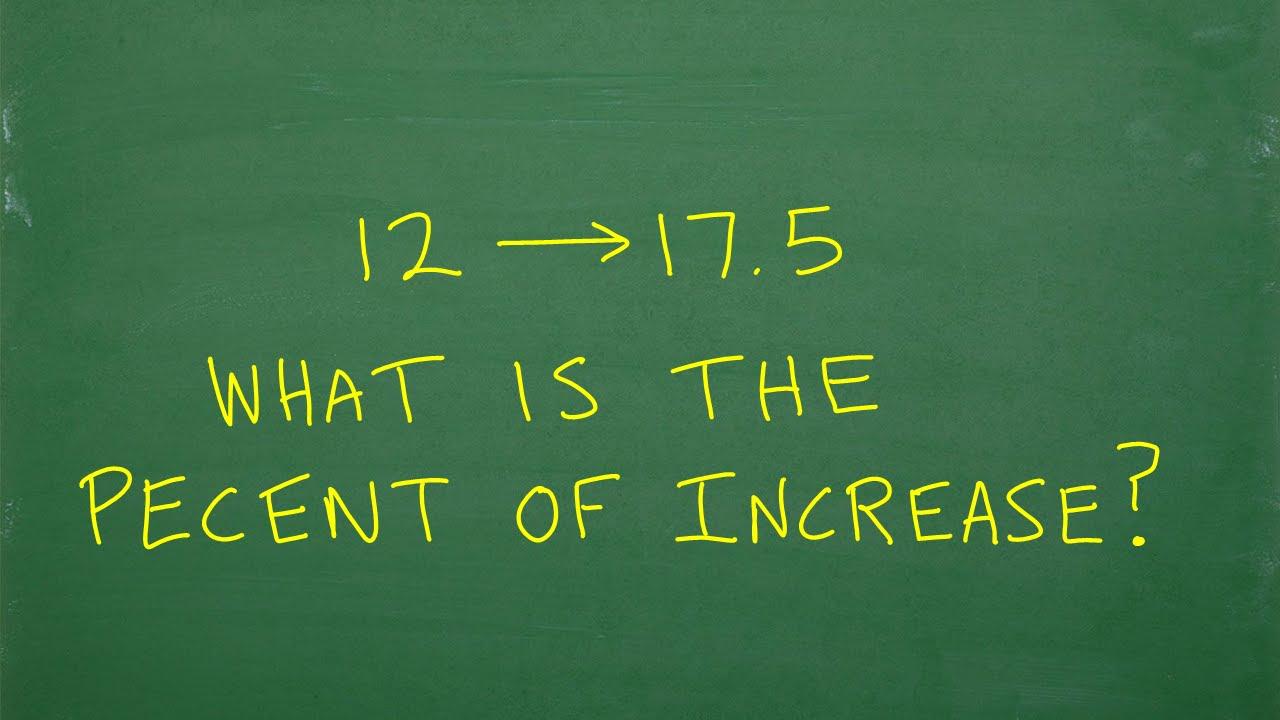 12 → 17.5
WHAT IS THE
PECENT OF INCREASE?